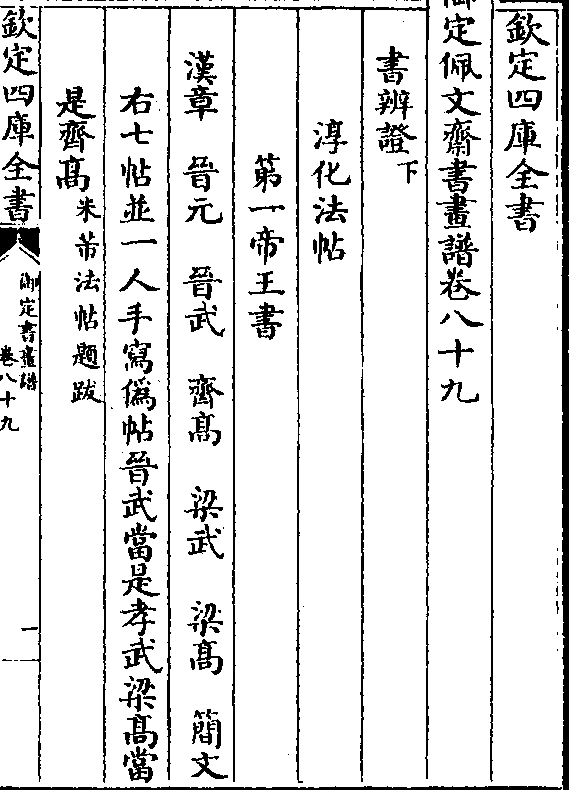 欽定四庫全書
御定佩文齋書畫譜卷八十九
書辨證下
淳化法帖
第一帝王書
漢章　晉元　晉武　齊髙　梁武　梁髙　簡文
右七帖並一人手寫偽帖晉武當是孝武梁髙當
是齊髙米芾法帖題跋
欽定四庫全書
御定書畫譜
卷八十九
一